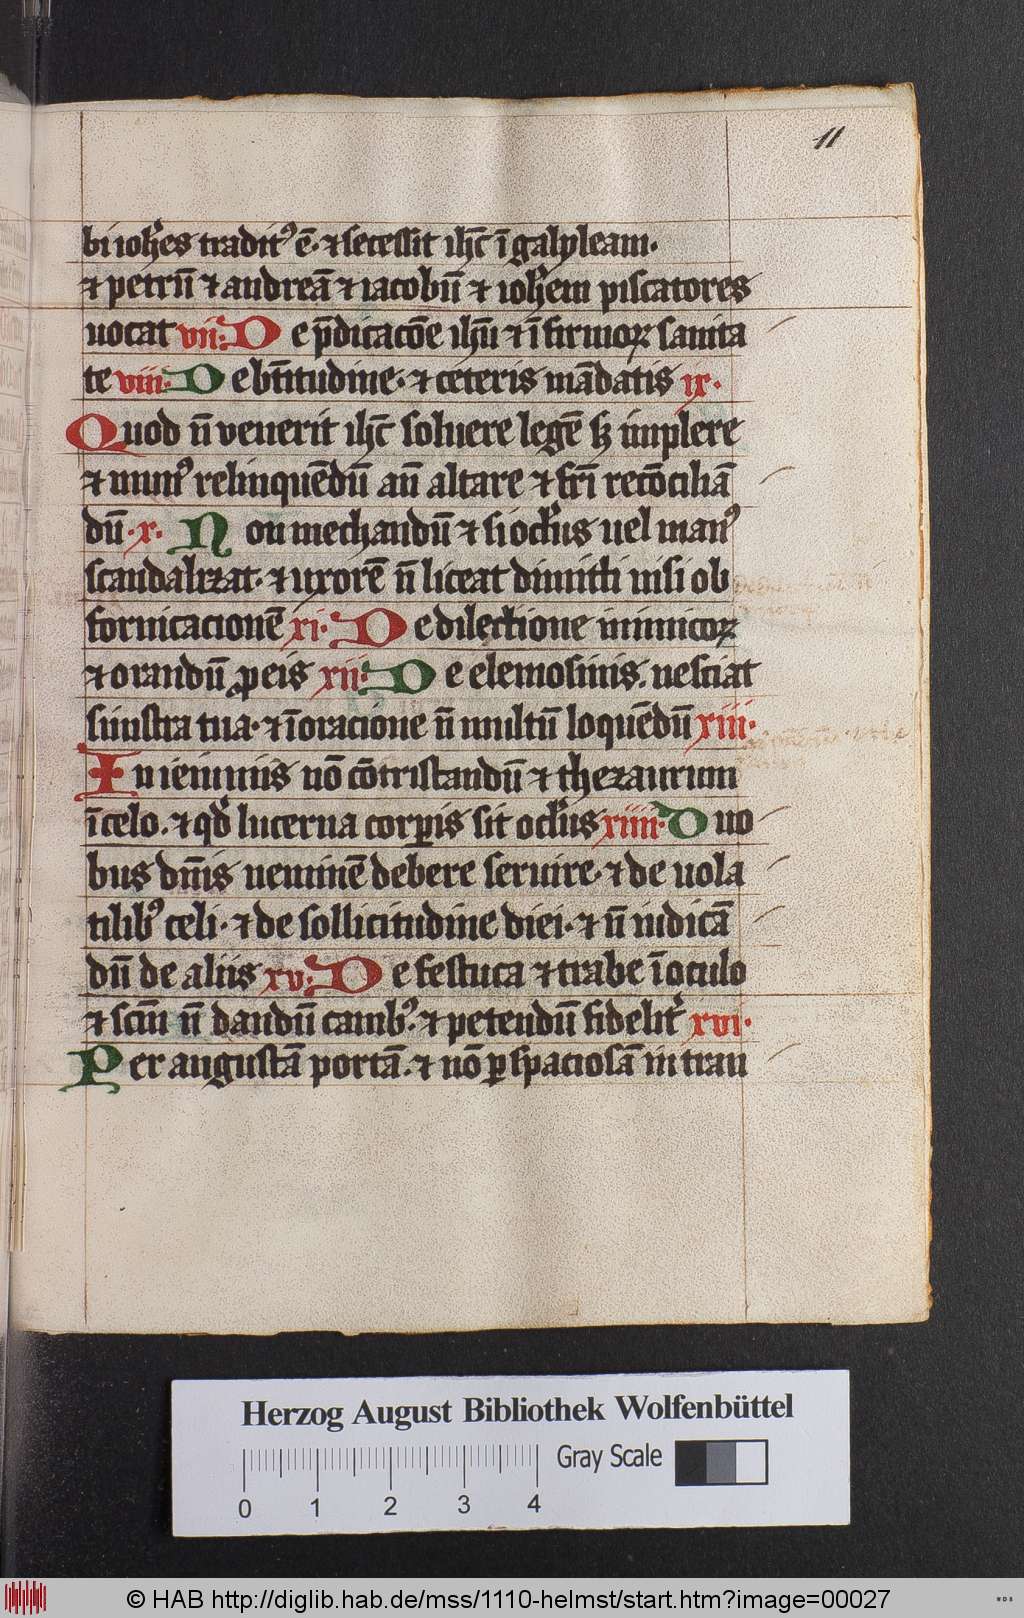 11
bi ioh̃es tradit᷒ ẽ· ⁊ secessit ih̃c ĩ galyleam·
⁊ petrũ ⁊ andreã ⁊ iacobũ ⁊ ioh̃em piscatores
uocat vii· De p̃dicacõe ih̃u ⁊ ĩfirmoꝝ sanita
te viii· De bt̃itudine· ⁊ ceteris mãdatis ix·
Quod ñ venerit ih̃c soluere legẽ sꝫ implere
⁊ mun᷒ relinquẽdũ añ altare ⁊ fr̃i recõciliã
dũ· x· Non mechandũ ⁊ si ocl̃us uel man᷒
scandalizat· ⁊ uxorẽ ñ liceat dimitti nisi ob
fornicacionẽ xi· De dilectione inimicoꝝ
⁊ orandũ ꝓ eis xii· De elemosinis. nesciat
sinistra tua· ⁊ ĩ oracione ñ multũ loquẽdũ xiii·
In ieiuniis nõ cõtristandũ ⁊ thezaurum
ĩ celo. ⁊ qđ lucerna corꝑis sit ocl̃us xiiii· Duo
bus dñis neminẽ debere seruire· ⁊ de uola
tilib᷒ celi· ⁊ de sollicitudine diei· ⁊ ñ iudicã
dũ de aliis xv· De festuca ⁊ trabe ĩ oculo
⁊ scm̃ ñ dandũ canib᷒. ⁊ petendũ fidelit̃ xvi·
Per angustã portã. ⁊ nõ ꝑ spaciosã intran
Herzog August Bibliothek Wolfenbüttel
Gray Scale
0 1 2 3 4
© HAB http://diglib.hab.de/mss/1110-helmst/start.htm?image=00027